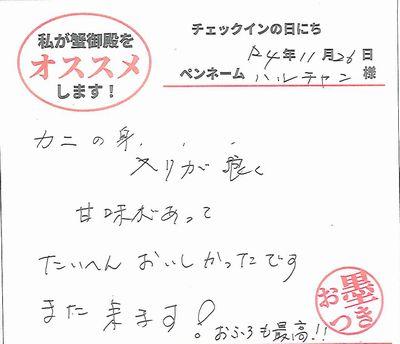 私が蟹御殿を
オススメ
します！
チェックインの日にち
R4年11月26日
ペンネーム ハルチャン 様
カニの身、、、
入りが良く
甘味があって
たいへん おいしかったです
また 来ます！
おふろも最高!!
お墨つき